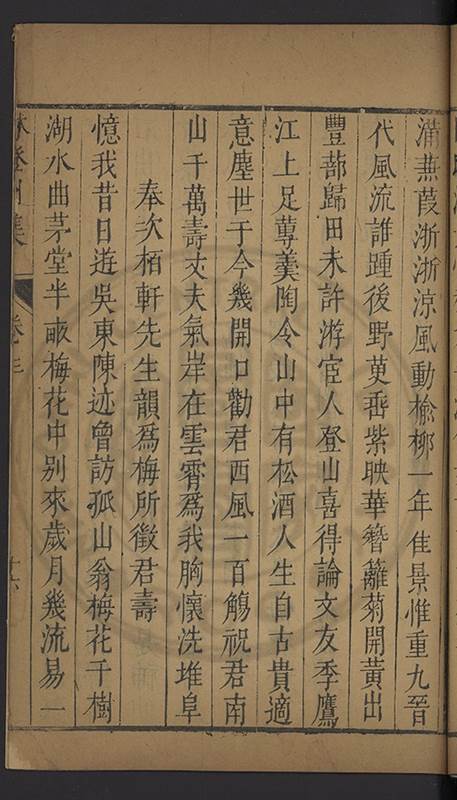 蒲燕葭淅淅涼風動榆柳一年佳景惟重九晉
代風流誰踵後野萸垂紫映華簪籬菊開黃出
豐蔀歸田未許游宦人登山喜得論文友季鷹
江上足蓴羹陶令山中有松酒人生自古貴適
意塵世于今幾開口勸君西風一百觴祝君南
山千萬壽丈夫氣岸在雲霄爲我胸懷洗堆阜
奉次栢軒先生韻爲梅所徵君壽
憶我昔日遊吳東陳迹曾訪孤山翁梅花千樹
湖水曲茅堂半畝梅花中别來歲月幾流易一
林登州集
卷三